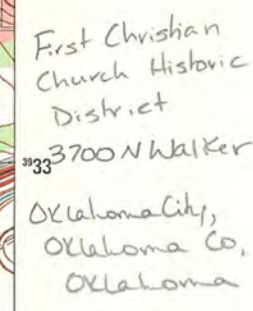 First Christian
Church Historic
District
3700 N Walker
³⁹33
Oklahoma City,
Oklahoma Co,
Oklahoma